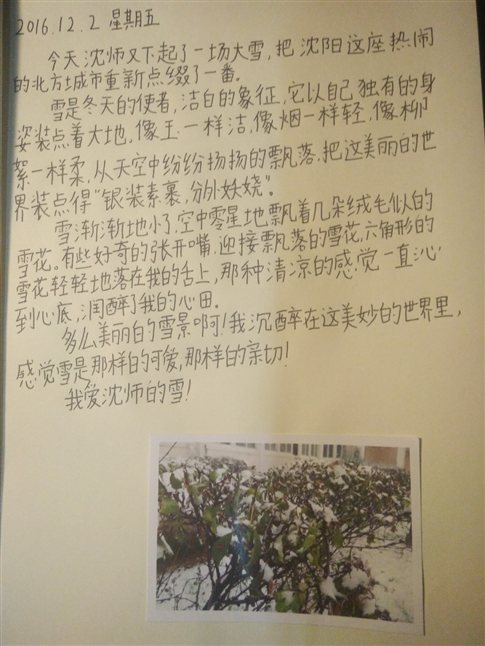 2016.12.2 星期五
今天沈师又下起了一场大雪，把沈阳这座热闹
的北方城市重新点缀了一番。
雪是冬天的使者，洁白的象征，它以自己独有的身
姿装点着大地，像玉一样洁，像烟一样轻，像柳
絮一样柔，从天空中纷纷扬扬的飘落，把这美丽的世
界装点得“银装素裹，分外妖娆”。
雪渐渐地小了，空中零星地飘着几朵绒毛似的
雪花。有些好奇的张开嘴，迎接飘落的雪花，六角形的
雪花轻轻地落在我的舌上，那种清凉的感觉一直沁
到心底，润醉了我的心田。
多么美丽的雪景啊！我沉醉在这美妙的世界里，
感觉雪是那样的可爱，那样的亲切！
我爱沈师的雪！